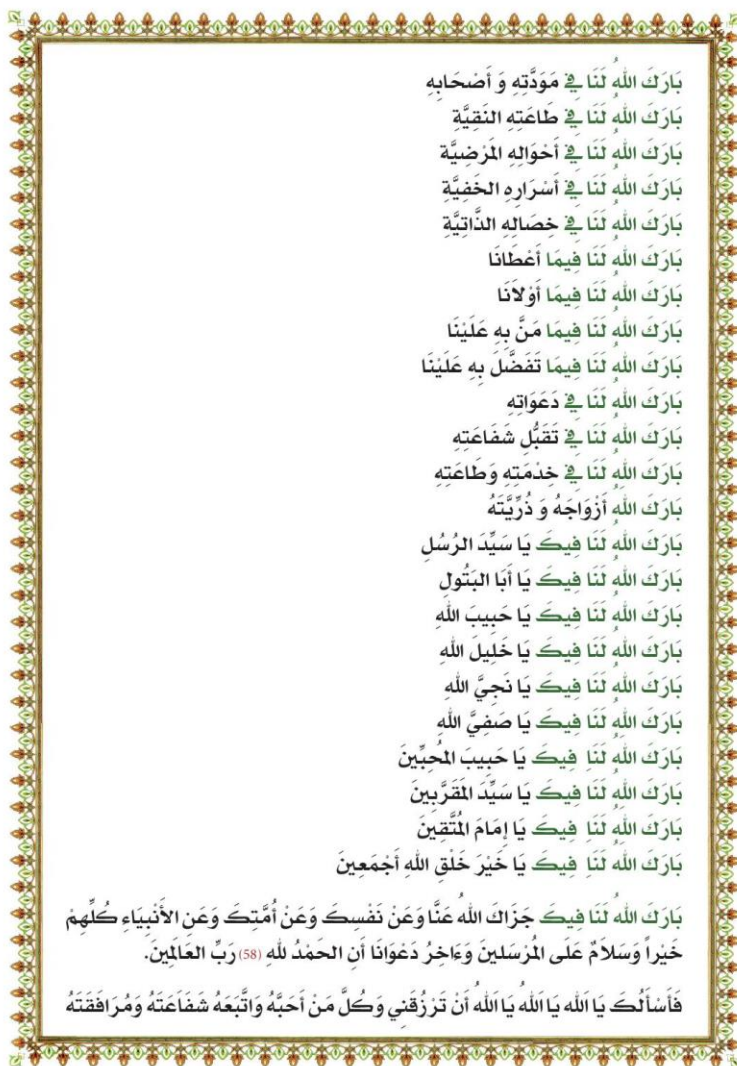 بَارَكَ اللهُ لَنَا فِي مَوَدَّتِهِ وَ أَصْحَابِهِ
بَارَكَ اللهُ لَنَا فِي طَاعَتِهِ النَقِيَّةِ
بَارَكَ اللهُ لَنَا فِي أَحْوَالِهِ المَرْضِيَّةِ
بَارَكَ اللهُ لَنَا فِي أَسْرَارِهِ الخَفِيَّةِ
بَارَكَ اللهُ لَنَا فِي خِصَالِهِ الذَّاتِيَّةِ
بَارَكَ اللهُ لَنَا فِيمَا أَعْطَانَا
بَارَكَ اللهُ لَنَا فِيمَا أَوْلاَنَا
بَارَكَ اللهُ لَنَا فِيمَا مَنَّ بِهِ عَلَيْنَا
بَارَكَ اللهُ لَنَا فِيمَا تَفَضَّلَ بِهِ عَلَيْنَا
بَارَكَ اللهُ لَنَا فِي دَعَوَاتِهِ
بَارَكَ اللهُ لَنَا فِي تَقَبُّلِ شَفَاعَتِهِ
بَارَكَ اللهُ لَنَا فِي خِدْمَتِهِ وَطَاعَتِهِ
بَارَكَ اللهُ أَزْوَاجَهُ وَ ذُرِّيَّتَهُ
بَارَكَ اللهُ لَنَا فِيكَ يَا سَيِّدَ الرُسُلِ
بَارَكَ اللهُ لَنَا فِيكَ يَا أَبَا البَتُولِ
بَارَكَ اللهُ لَنَا فِيكَ يَا حَبِيبَ اللهِ
بَارَكَ اللهُ لَنَا فِيكَ يَا خَلِيلَ اللهِ
بَارَكَ اللهُ لَنَا فِيكَ يَا نَجِيَّ اللهِ
بَارَكَ اللهُ لَنَا فِيكَ يَا صَفِيَّ اللهِ
بَارَكَ اللهُ لَنَا فِيكَ يَا حَبِيبَ المُحِبِّينَ
بَارَكَ اللهُ لَنَا فِيكَ يَا سَيِّدَ المَقَرَّبِينَ
بَارَكَ اللهُ لَنَا فِيكَ يَا إِمَامَ المُتَّقِينَ
بَارَكَ اللهُ لَنَا فِيكَ يَا خَيْرَ خَلْقِ اللهِ أَجْمَعِينَ
بَارَكَ اللهُ لَنَا فِيكَ جَزَاكَ اللهُ عَنَّا وَعَنْ نَفْسِكَ وَعَنْ أُمَّتِكَ وَعَنِ الأَنْبِيَاءِ كُلِّهِمْ
خَيْراً وَسَلاَمٌ عَلَى المُرْسَلِينَ وَءَاخِرُ دَعْوَانَا أَنِ الحَمْدُ للهِ (58) رَبِّ العَالَمِينَ.
فَأَسْأَلُكَ يَا اَللهُ يَا اَللهُ يَا اَللهُ أَنْ تَرْزُقَنِي وَكُلَّ مَنْ أَحَبَّهُ وَاتَّبَعَهُ شَفَاعَتَهُ وَمُرَافَقَتَهُ